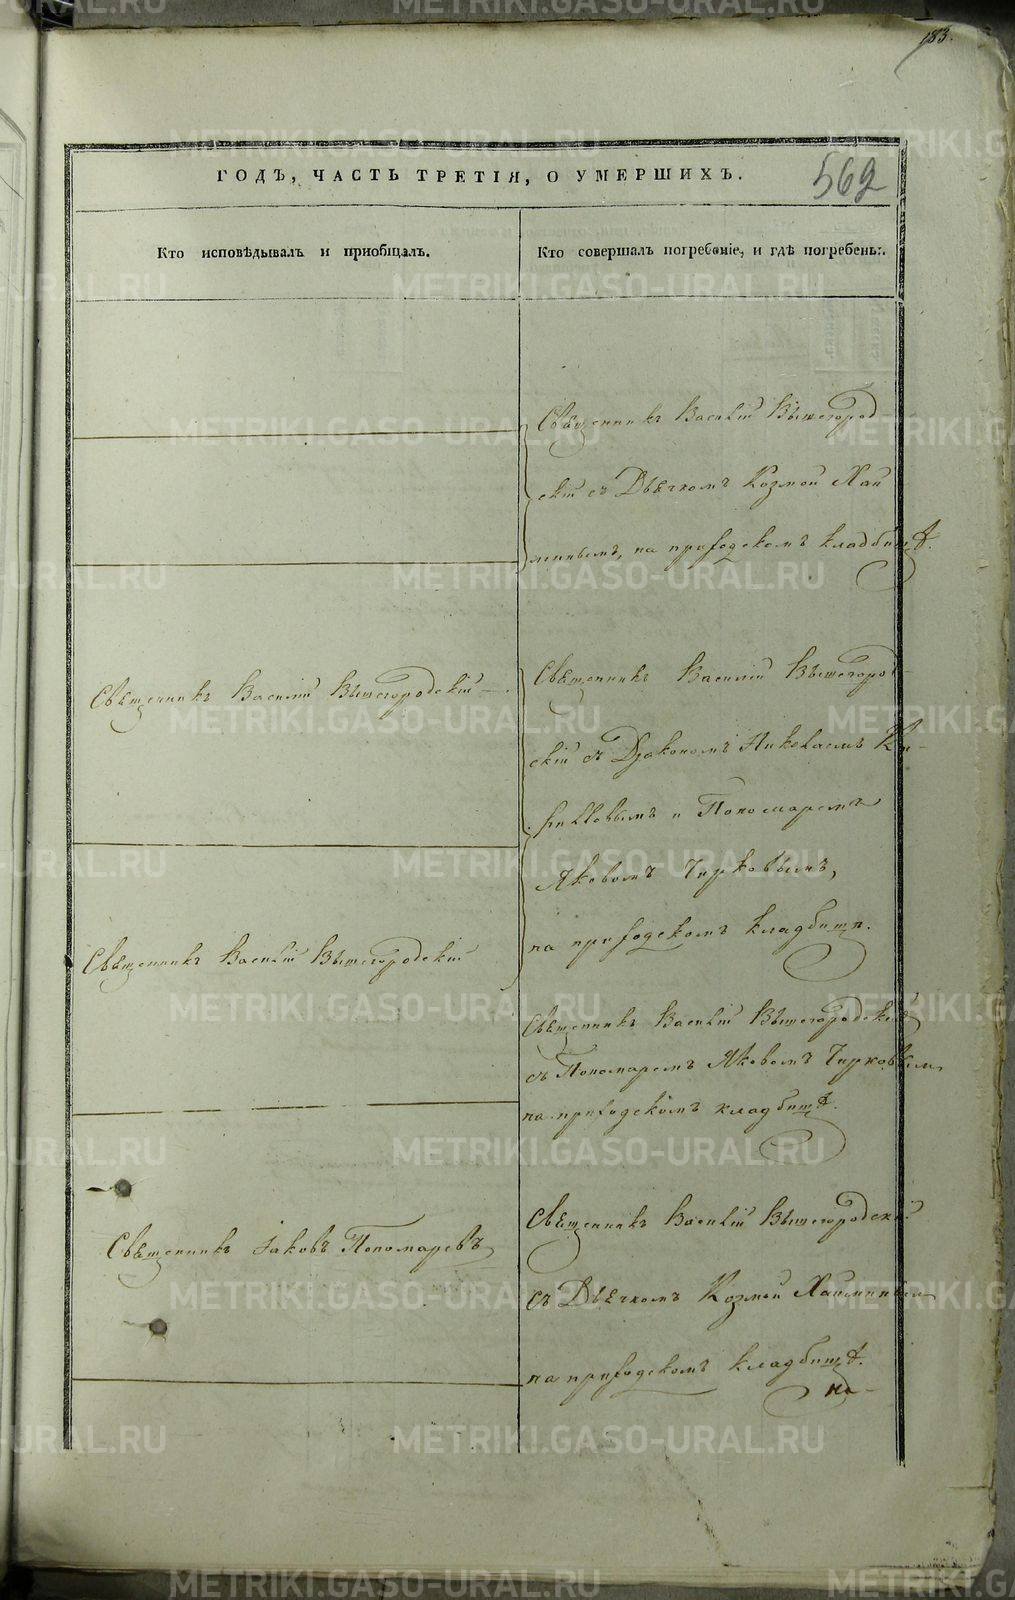 183.
562
ГОДЪ, ЧАСТЬ ТРЕТІЯ, О УМЕРШИХЪ.
Кто исповѣдывалъ и пріобщалъ.
Кто совершалъ погребеніе, и гдѣ погребены.
Священникъ Василій Вышегород
скій съ Дьячкомъ Козмой Хай
минымъ, на приходскомъ кладбищѣ.
Священникъ Василій Вышегородскій
Священникъ Василій Вышегород
скій съ Діакономъ Николаемъ Ки-
рилловымъ и Пономаремъ
Яковомъ Чирковымъ,
на приходскомъ кладбищѣ.
Священникъ Василій Вышегородскій
Священникъ Василій Вышегородскій
съ Пономаремъ Яковомъ Чирковымъ
на приходскомъ кладбищѣ.
Священникъ Іаковъ Пономаревъ
Священникъ Василій Вышегородскій
съ Дьячкомъ Козмой Хайминым
на приходскомъ кладбищѣ.
на-
METRIKI.GASO-URAL.RU